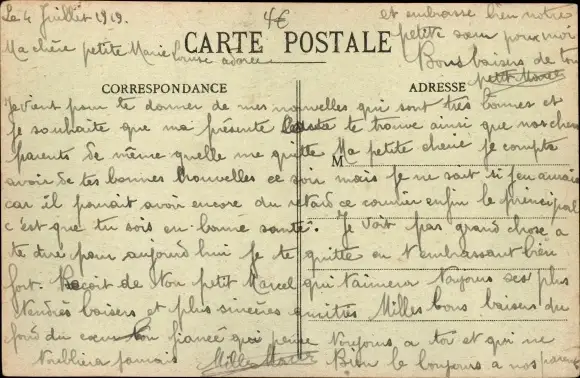 Le 4 Juillet 1919.
4€
Ma chère petite Marie Louise adorée
CARTE POSTALE
CORRESPONDANCE
ADRESSE
M
Je vient pour te donner de mes nouvelles qui sont très bonnes et
je souhaite que ma présente te trouve ainsi que nos chers
parents de même quelle me quitte Ma petite cherie je compte
avoir de tes bonnes nouvelles ce soir mais je ne sait si j'en aurais
car il pourrait avoir encore du retard ce courrier enfin le principal
c'est que tu sois en bonne santé. Je voit pas grand chose a
te dire pour aujourd'hui je te quitte en t'embrassant bien
fort. Reçoit de ton petit Marcel qui t'aimera toujours ses plus
tendres baisers et plus sincères Milles bons baisers du
fond du cœur ton fiancé qui pense toujours a toi et qui ne
t'oubliera jamais
Bien le bonjours a nos parents
et embrasse bien notre
petite sœur pour moi
Bons baisers de ton
petit Marcel